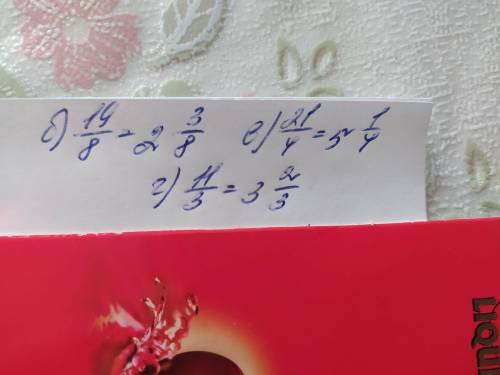 б) 19/8 = 2 3/8 в) 21/4 = 5 1/4
г) 11/3 = 3 2/3
LIQU